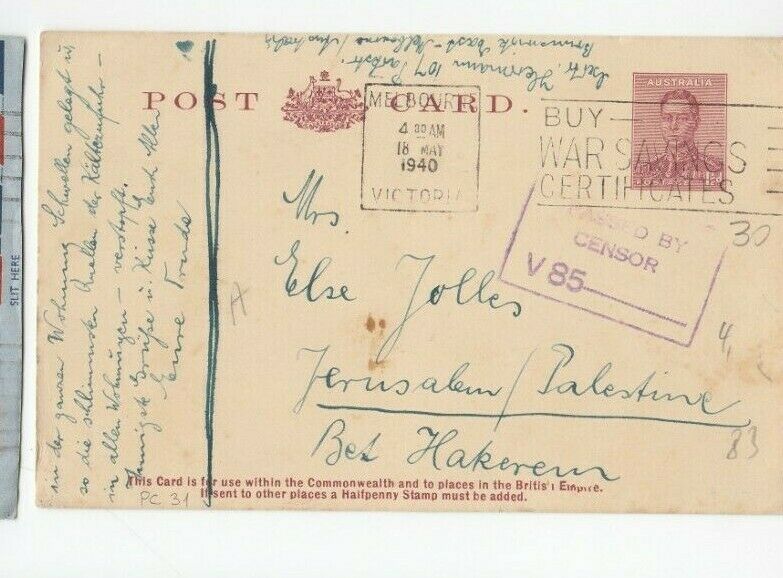 SLIT HERE
Hermann 107 Parkstr.
Brunswick East - Melbourne
POST CARD.
AUSTRALIA
MELBOURNE
4 30 AM
18 MAY
1940
VICTORIA
BUY
WAR SAVINGS
CERTIFICATES
PASSED BY
CENSOR
V 85
30
Mrs.
Else Jolles
Jerusalem / Palestine
Bet Hakerem
4,
83
in der ganzen Wohnung Schwellen gelegt u.
so die schlimmsten Quellen der Kältezufuhr -
in allen Wohnungen - verstopft.
Innigste Grüße u. Küsse Euch Allen
Eure Trude
This Card is for use within the Commonwealth and to places in the British Empire.
If sent to other places a Halfpenny Stamp must be added.
PC 31